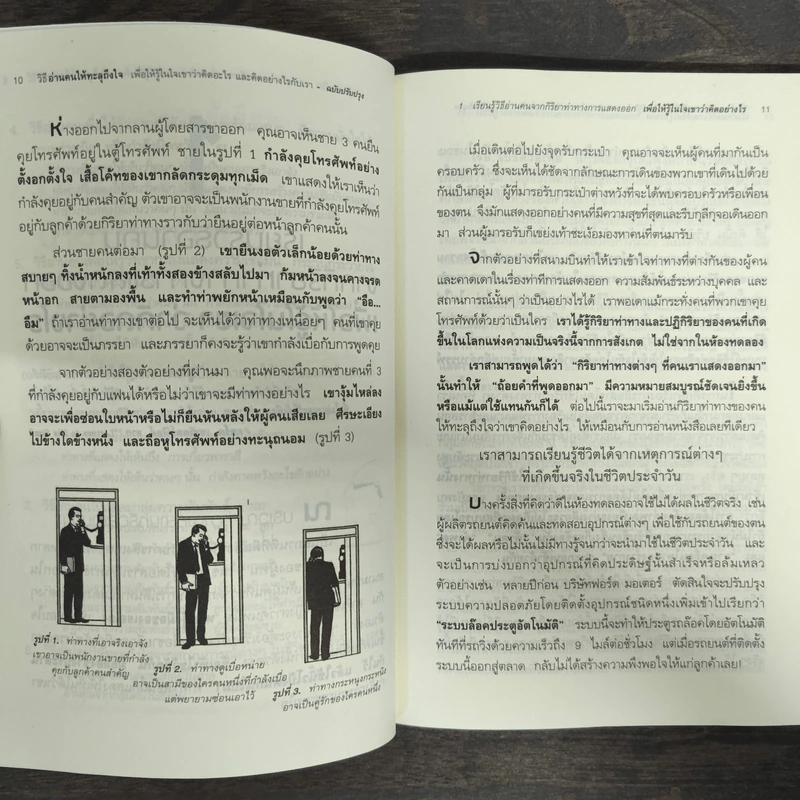 10 วิธีอ่านคนให้ทะลุถึงใจ เพื่อให้รู้ในใจเขาว่าคิดอะไร และคิดอย่างไรกับเรา - ฉบับปรับปรุง
ห่างออกไปจากลานผู้โดยสารขาออก คุณอาจเห็นชาย 3 คนยืน
คุยโทรศัพท์อยู่ในตู้โทรศัพท์ ชายในรูปที่ 1 กำลังคุยโทรศัพท์อย่าง
ตั้งอกตั้งใจ เสื้อโค้ทของเขากลัดกระดุมทุกเม็ด เขาแสดงให้เราเห็นว่า
กำลังคุยอยู่กับคนสำคัญ ตัวเขาอาจจะเป็นพนักงานขายที่กำลังคุยโทรศัพท์
อยู่กับลูกค้าด้วยกิริยาท่าทางราวกับว่ายืนอยู่ต่อหน้าลูกค้าคนนั้น
ส่วนชายคนต่อมา (รูปที่ 2) เขายืนงอตัวเล็กน้อยด้วยท่าทาง
สบายๆ ทิ้งน้ำหนักลงที่เท้าทั้งสองข้างสลับไปมา ก้มหน้าลงจนคางจรด
หน้าอก สายตามองพื้น และทำท่าพยักหน้าเหมือนกับพูดว่า "อือ...
อืม" ถ้าเราอ่านท่าทางเขาต่อไป จะเห็นได้ว่าท่าทางเหนื่อยๆ คนที่เขาคุย
ด้วยอาจจะเป็นภรรยา และภรรยาก็คงจะรู้ว่าเขากำลังเบื่อกับการพูดคุย
จากตัวอย่างสองตัวอย่างที่ผ่านมา คุณพอจะนึกภาพชายคนที่ 3
ที่กำลังคุยอยู่กับแฟนได้หรือไม่ว่าเขาจะมีท่าทางอย่างไร เขางุ้มไหล่ลง
อาจจะเพื่อซ่อนใบหน้าหรือไม่ก็ยืนหันหลังให้ผู้คนเสียเลย ศีรษะเอียง
ไปข้างใดข้างหนึ่ง และถือหูโทรศัพท์อย่างทะนุถนอม (รูปที่ 3)
รูปที่ 1. ท่าทางที่เอาจริงเอาจัง
เขาอาจเป็นพนักงานขายที่กำลัง
คุยกับลูกค้าคนสำคัญ
รูปที่ 2. ท่าทางดูเบื่อหน่าย
อาจเป็นสามีของใครคนหนึ่งที่กำลังเบื่อ
แต่พยายามซ่อนเอาไว้
รูปที่ 3. ท่าทางกระหนุงกระหนิง
อาจเป็นคู่รักของใครคนหนึ่ง
1 เรียนรู้วิธีอ่านคนจากกิริยาท่าทางการแสดงออก เพื่อให้รู้ในใจเขาว่าคิดอย่างไร 11
เมื่อเดินต่อไปยังจุดรับกระเป๋า คุณอาจจะเห็นผู้คนที่มากันเป็น
ครอบครัว ซึ่งจะเห็นได้ชัดจากลักษณะการเดินของพวกเขาที่เดินไปด้วย
กันเป็นกลุ่ม ผู้ที่มารอรับกระเป๋าต่างหวังที่จะได้พบครอบครัวหรือเพื่อน
ของตน จึงมักแสดงออกอย่างคนที่มีความสุขที่สุดและรีบกุลีกุจอเดินออก
มา ส่วนผู้มารอรับก็เขย่งเท้าชะเง้อมองหาคนที่ตนมารับ
จากตัวอย่างที่สนามบินทำให้เราเข้าใจท่าทางที่ต่างกันของผู้คน
และคาดเดาในเรื่องท่าทีการแสดงออก ความสัมพันธ์ระหว่างบุคคล และ
สถานการณ์นั้นๆ ว่าเป็นอย่างไรได้ เราพอเดาแม้กระทั่งคนที่พวกเขาคุย
โทรศัพท์ด้วยว่าเป็นใคร เราได้รู้กิริยาท่าทางและปฏิกิริยาของคนที่เกิด
ขึ้นในโลกแห่งความเป็นจริงนี้จากการสังเกต ไม่ใช่จากในห้องทดลอง
เราสามารถพูดได้ว่า "กิริยาท่าทางต่างๆ ที่คนเราแสดงออกมา"
นั้นทำให้ "ถ้อยคำที่พูดออกมา" มีความหมายสมบูรณ์ชัดเจนยิ่งขึ้น
หรือแม้แต่ใช้แทนกันก็ได้ ต่อไปนี้เราจะมาเริ่มอ่านกิริยาท่าทางของคน
ให้ทะลุถึงใจว่าเขาคิดอย่างไร ให้เหมือนกับการอ่านหนังสือเลยทีเดียว
เราสามารถเรียนรู้ชีวิตได้จากเหตุการณ์ต่างๆ
ที่เกิดขึ้นจริงในชีวิตประจำวัน
บางครั้งสิ่งที่คิดว่าดีในห้องทดลองอาจใช้ไม่ได้ผลในชีวิตจริง เช่น
ผู้ผลิตรถยนต์คิดค้นและทดสอบอุปกรณ์ต่างๆ เพื่อใช้กับรถยนต์ของตน
ซึ่งจะได้ผลหรือไม่นั้นไม่มีทางรู้จนกว่าจะนำมาใช้ในชีวิตประจำวัน และ
จะเป็นการบ่งบอกว่าอุปกรณ์ที่คิดประดิษฐ์นั้นสำเร็จหรือล้มเหลว
ตัวอย่างเช่น หลายปีก่อน บริษัทฟอร์ด มอเตอร์ ตัดสินใจจะปรับปรุง
ระบบความปลอดภัยโดยติดตั้งอุปกรณ์ชนิดหนึ่งเพิ่มเข้าไปเรียกว่า
"ระบบล๊อคประตูอัตโนมัติ" ระบบนี้จะทำให้ประตูรถล๊อคโดยอัตโนมัติ
ทันทีที่รถวิ่งด้วยความเร็วถึง 9 ไมล์ต่อชั่วโมง แต่เมื่อรถยนต์ที่ติดตั้ง
ระบบนี้ออกสู่ตลาด กลับไม่ได้สร้างความพึงพอใจให้แก่ลูกค้าเลย!